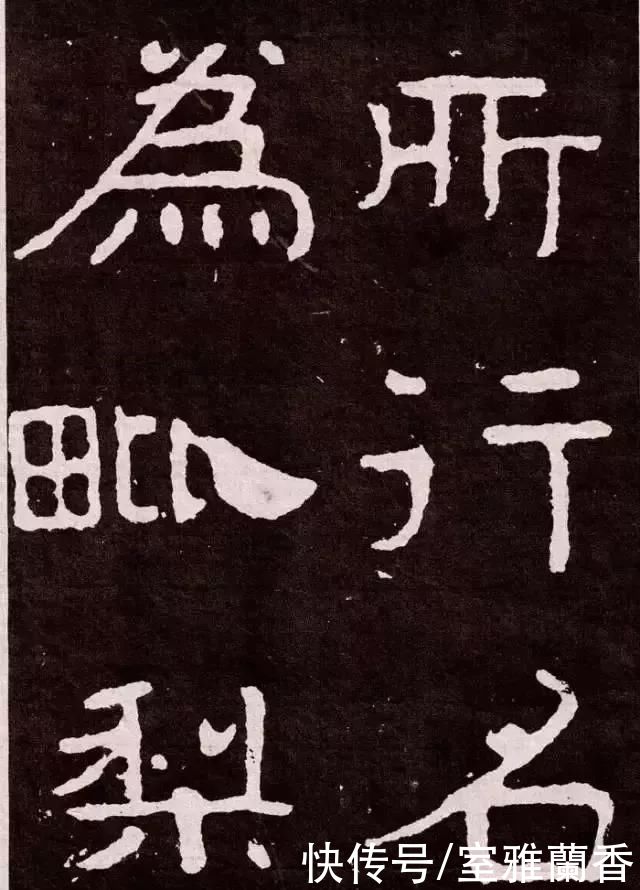 所行名
為毗梨
快传号/室雅蘭香